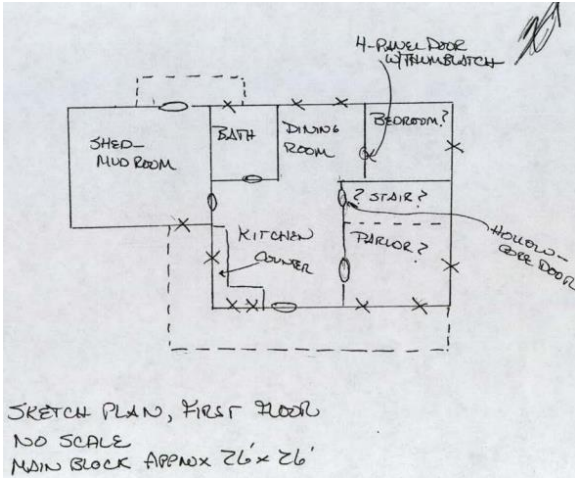 4-PANEL DOOR
W/THUMBLATCH
SHED-
MUD ROOM
BATH
DINING
ROOM
BEDROOM?
? STAIR?
PARLOR?
KITCHEN
COUNTER
HOLLOW-
CORE DOOR
SKETCH PLAN, FIRST FLOOR
NO SCALE
MAIN BLOCK APPROX 26'x 26'